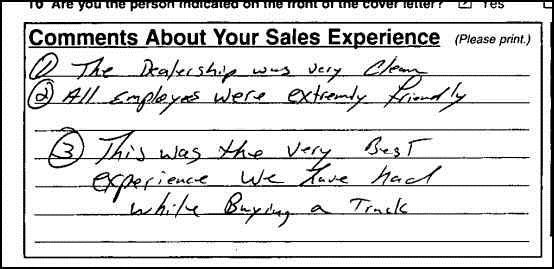 10 Are you the person indicated on the front of the cover letter? ☑ Yes
Comments About Your Sales Experience (Please print.)
① The Dealership was very Clean
② All Employees were extremly friendly
③ This was the very Best
experience we have had
while Buying a Truck